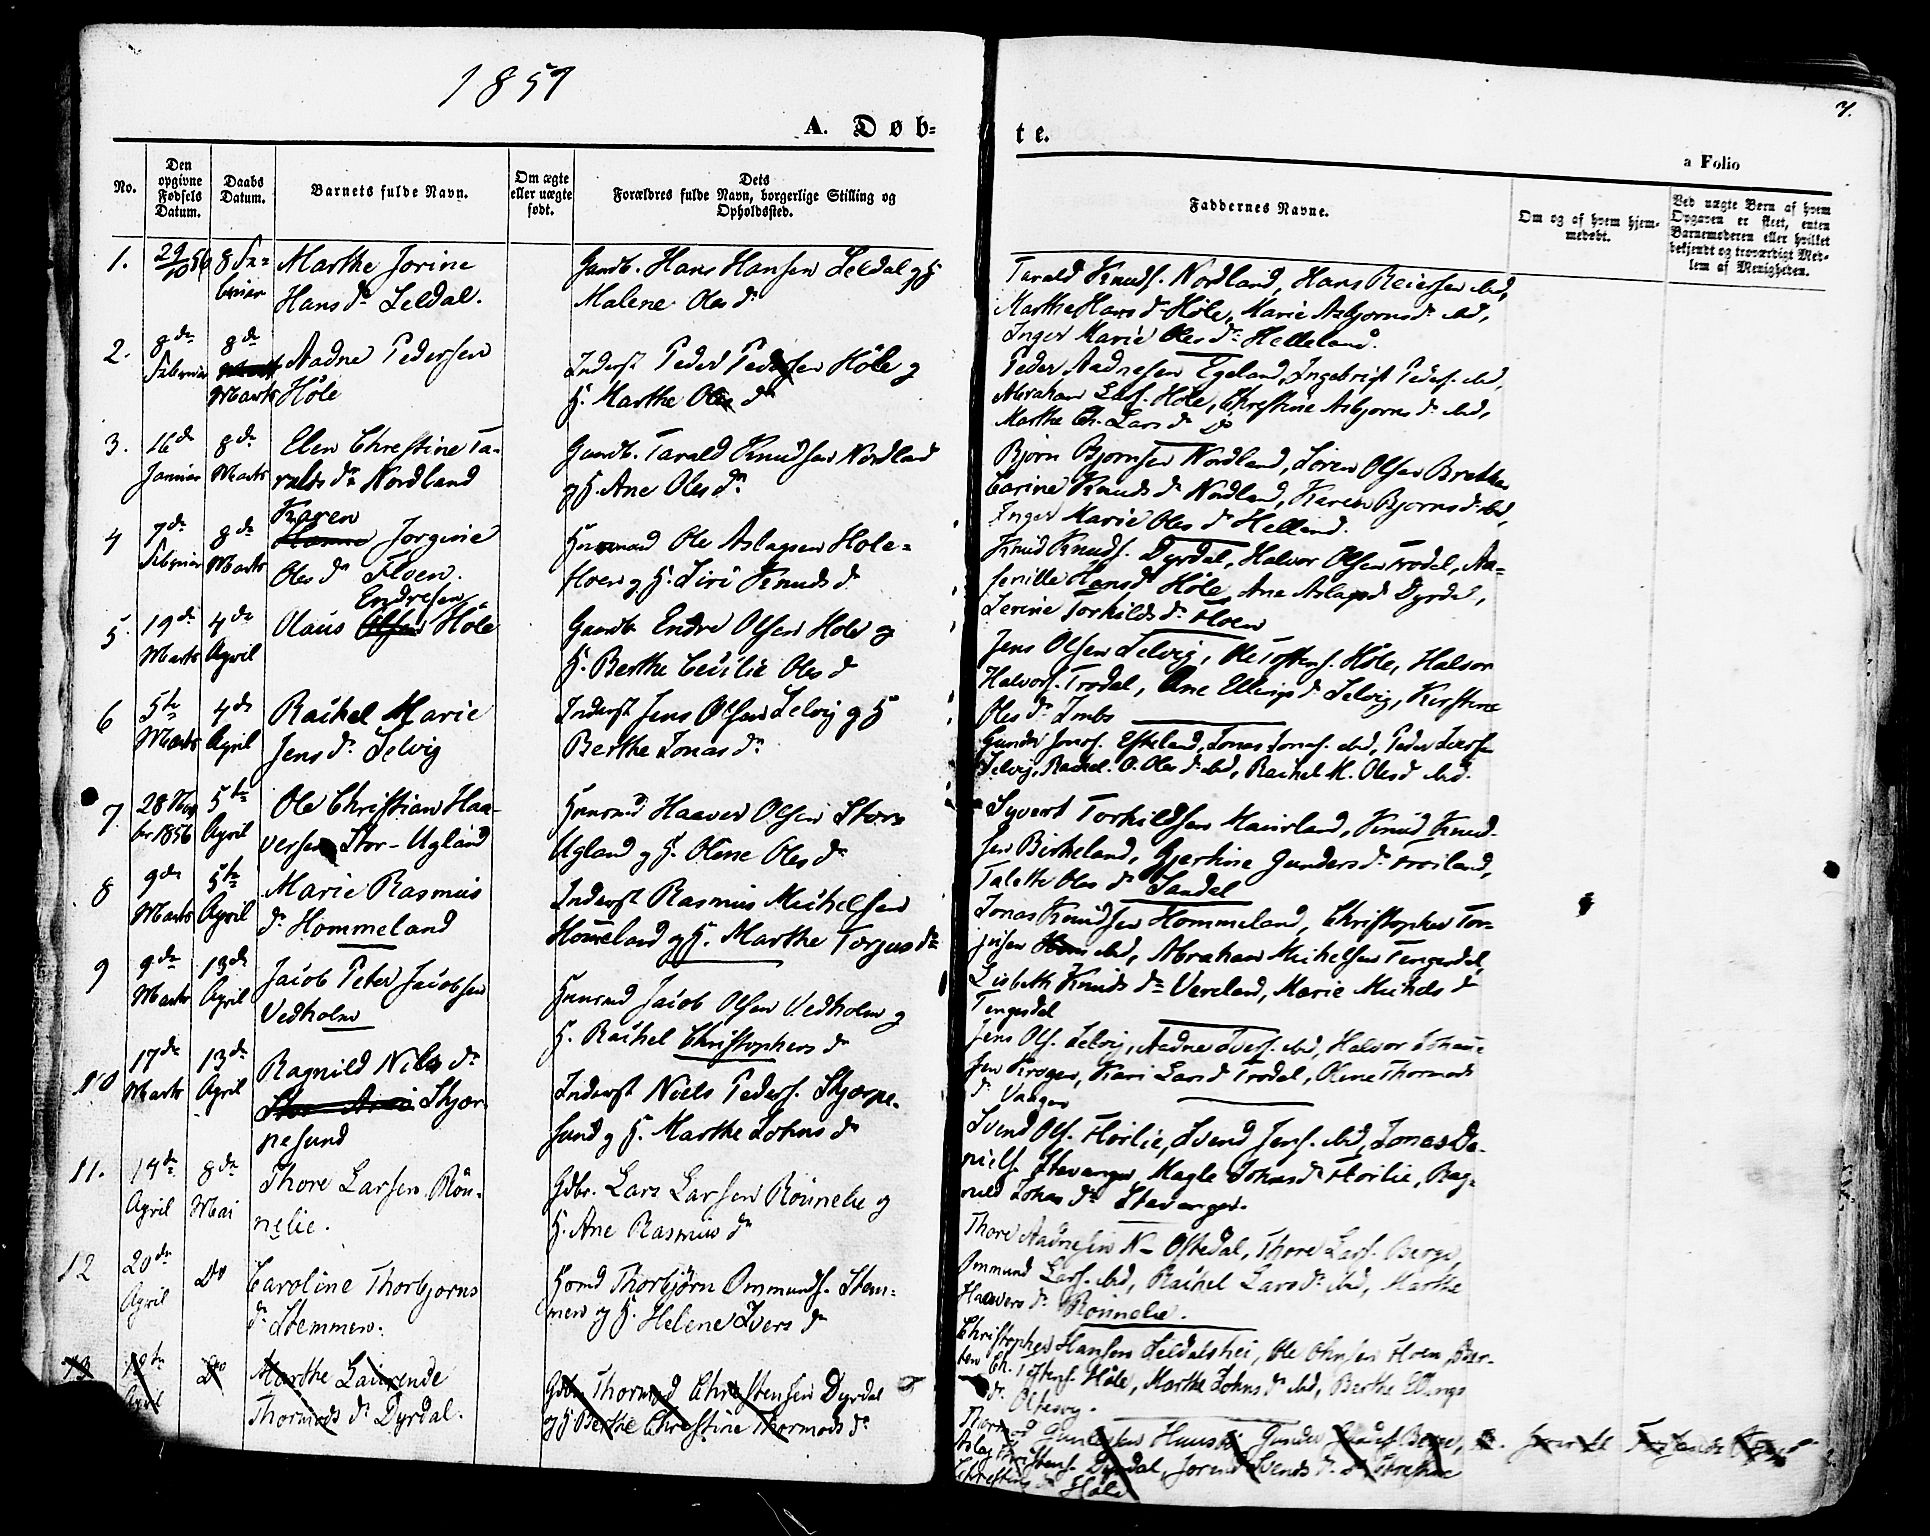 1857
7.
A. Døb-
te.
a Folio
No.
Den opgivne Fødsels Datum.
Daabs Datum.
Barnets fulde Navn.
Om ægte eller uægte født.
Dets Forældres fulde Navn, borgerlige Stilling og Opholdssted.
Faddernes Navne.
Om og af hvem hjemmedøbt.
Ved uægte Børn af hvem Opgaven er skeet, enten Barnemoderen eller hvilket bekjendt og troværdigt Medlem af Menigheden.
1.
29/10 56
8 Fe-
bruar
Marthe Jorine
Hans dr Seldal.
Gaardb. Hans Hansen Seldal og H
Malene Oles dr
Tarald Knuds. Nordland, Hans Reiersen ibid,
Marthe Hans dr Høle, Marie Asbjørns dr ibid,
Inger Marie Oles dr Helleland.
2.
8de
Februar
8de
Marts
Aadne Pedersen
Höle
Inderst Peder Pedersen Höle og
H. Marthe Oles dr
Peder Aadnesen Egeland, Ingebrigt Peders. ibid,
Abraham Lars. Høle, Christine Asbjørns dr ibid,
Marthe Ch. Lars dr do
3.
16de
Januar
8de
Marts
Elen Christine Ta-
ralds dr Nordland
Gaardb. Tarald Knudsen Nordland
og H. Ane Oles dr
Bjørn Bjørnsen Nordland, Søren Olsen Brekke
Carine Knuds dr Nordland, Karen Bjørns dr ibid,
Inger Marie Oles dr Helland.
4
7de
Februar
8de
Marts
Karen
Hanne Jorgine
Oles dr Floen.
Huusmand Ole Aslagsen Hole-
floen og H. Siri Knuds dr
Knud Knuds. Dyrdal, Halvor Olsen Trodal, Aa-
senille Hans dr Höle, Ane Aslags dr Dyrdal,
Serine Torkilds dr Floen
5.
19de
Marts
4de
April
Endresen
Olaus Olsen Höle
Gaardb Endre Olsen Hole og
H. Berthe Cecilie Oles dr
Jens Olsen Selvig, Ole Tostens. Höle, Halvor
Halvors. Trodal, Ane Ellings dr Selvig, Kirstine
Oles dr Imbs
6
5te
Marts
4de
April
Rachel Marie
Jens dr Selvig
Inderst Jens Olsen Selvig og H
Berthe Jonas dr
Gunder Jons. Eskeland, Jonas Jonas. ibid, Peder Ivers
Selvig, Rachel. O. Oles dr ibid, Rachel M. Oles dr ibid.
7.
28 Nov
br 1856
5te
April
Ole Christian Haa-
versen Stor-Ugland
Huusmd Haaver Olsen Stor
Ugland og H. Oline Oles dr
Syvert Torkildsen Maurland, Knud Knud-
sen Birkeland, Gjertine Gunders dr
Talette Oles dr Sandal
8
9de
Marts
5te
April
Marie Rasmus
dr Hommeland
Inderst Rasmus Michelsen
Hommeland og H. Marthe Torjus dr
Jonas Knudsen Hommeland, Christopher Tor-
jusen ibid, Abraham Michelsen Tengesdal,
Lisbeth Knuds dr Vereland, Marie Michels dr
Tengesdal
9
9de
Marts
13de
April
Jacob Peter Jacobsen
Vedholm
Huusmd Jacob Olsen Vedholm og
H. Rachel Christophers dr
Jens Ols. Selvig, Aadne Ivers. ibid, Halvor Johan-
sen Krogen, Kari Lars dr Trodal, Oline Thormods
dr Vaagen
10
17de
Marts
13de
April
Ragnild Niels dr
Skjør-
pesund
Inderst Niels Peders. Skjørpe-
sund og H. Marthe Johns dr
Svend Ols. Horilie, Svend Jens. ibid, Jonas Da-
niels. Stavanger, Magle Johns dr Horilie, Rag-
nild Johns dr Stavanger.
11.
14de
April
8de
Mai
Thore Larsen Rön-
nelie.
Gdbr. Lars Larsen Rönnelie og
H. Ane Rasmus dr
Thore Aadnesen N- Oftedal, Thore Lars. Berge,
Ommund Lars. ibid, Rachel Lars dr ibid, Marthe
Haavers dr Rönnelie.
12
20de
April
Do
Caroline Thorbjørns
dr Stemmen.
Hsmd Thorbjörn Ommunds. Stem-
men og H. Helene Ivers dr
Christopher Hansen Seldalshei, Ole Ohnsen Hoen,
ten Ch. Tostens. Höle, Marthe Johns dr ibid, Berthe Ellings
dr. Oltesvig.
13
April
Do
Marthe Laurende
Thormods dr Dyrdal.
Gdbr Thormod Christensen Dyrdal
og H Berthe Christine Thormods dr
Gunder
Aslag Christens. Dyrdal, Jorend Svends dr
Christine dr Höle